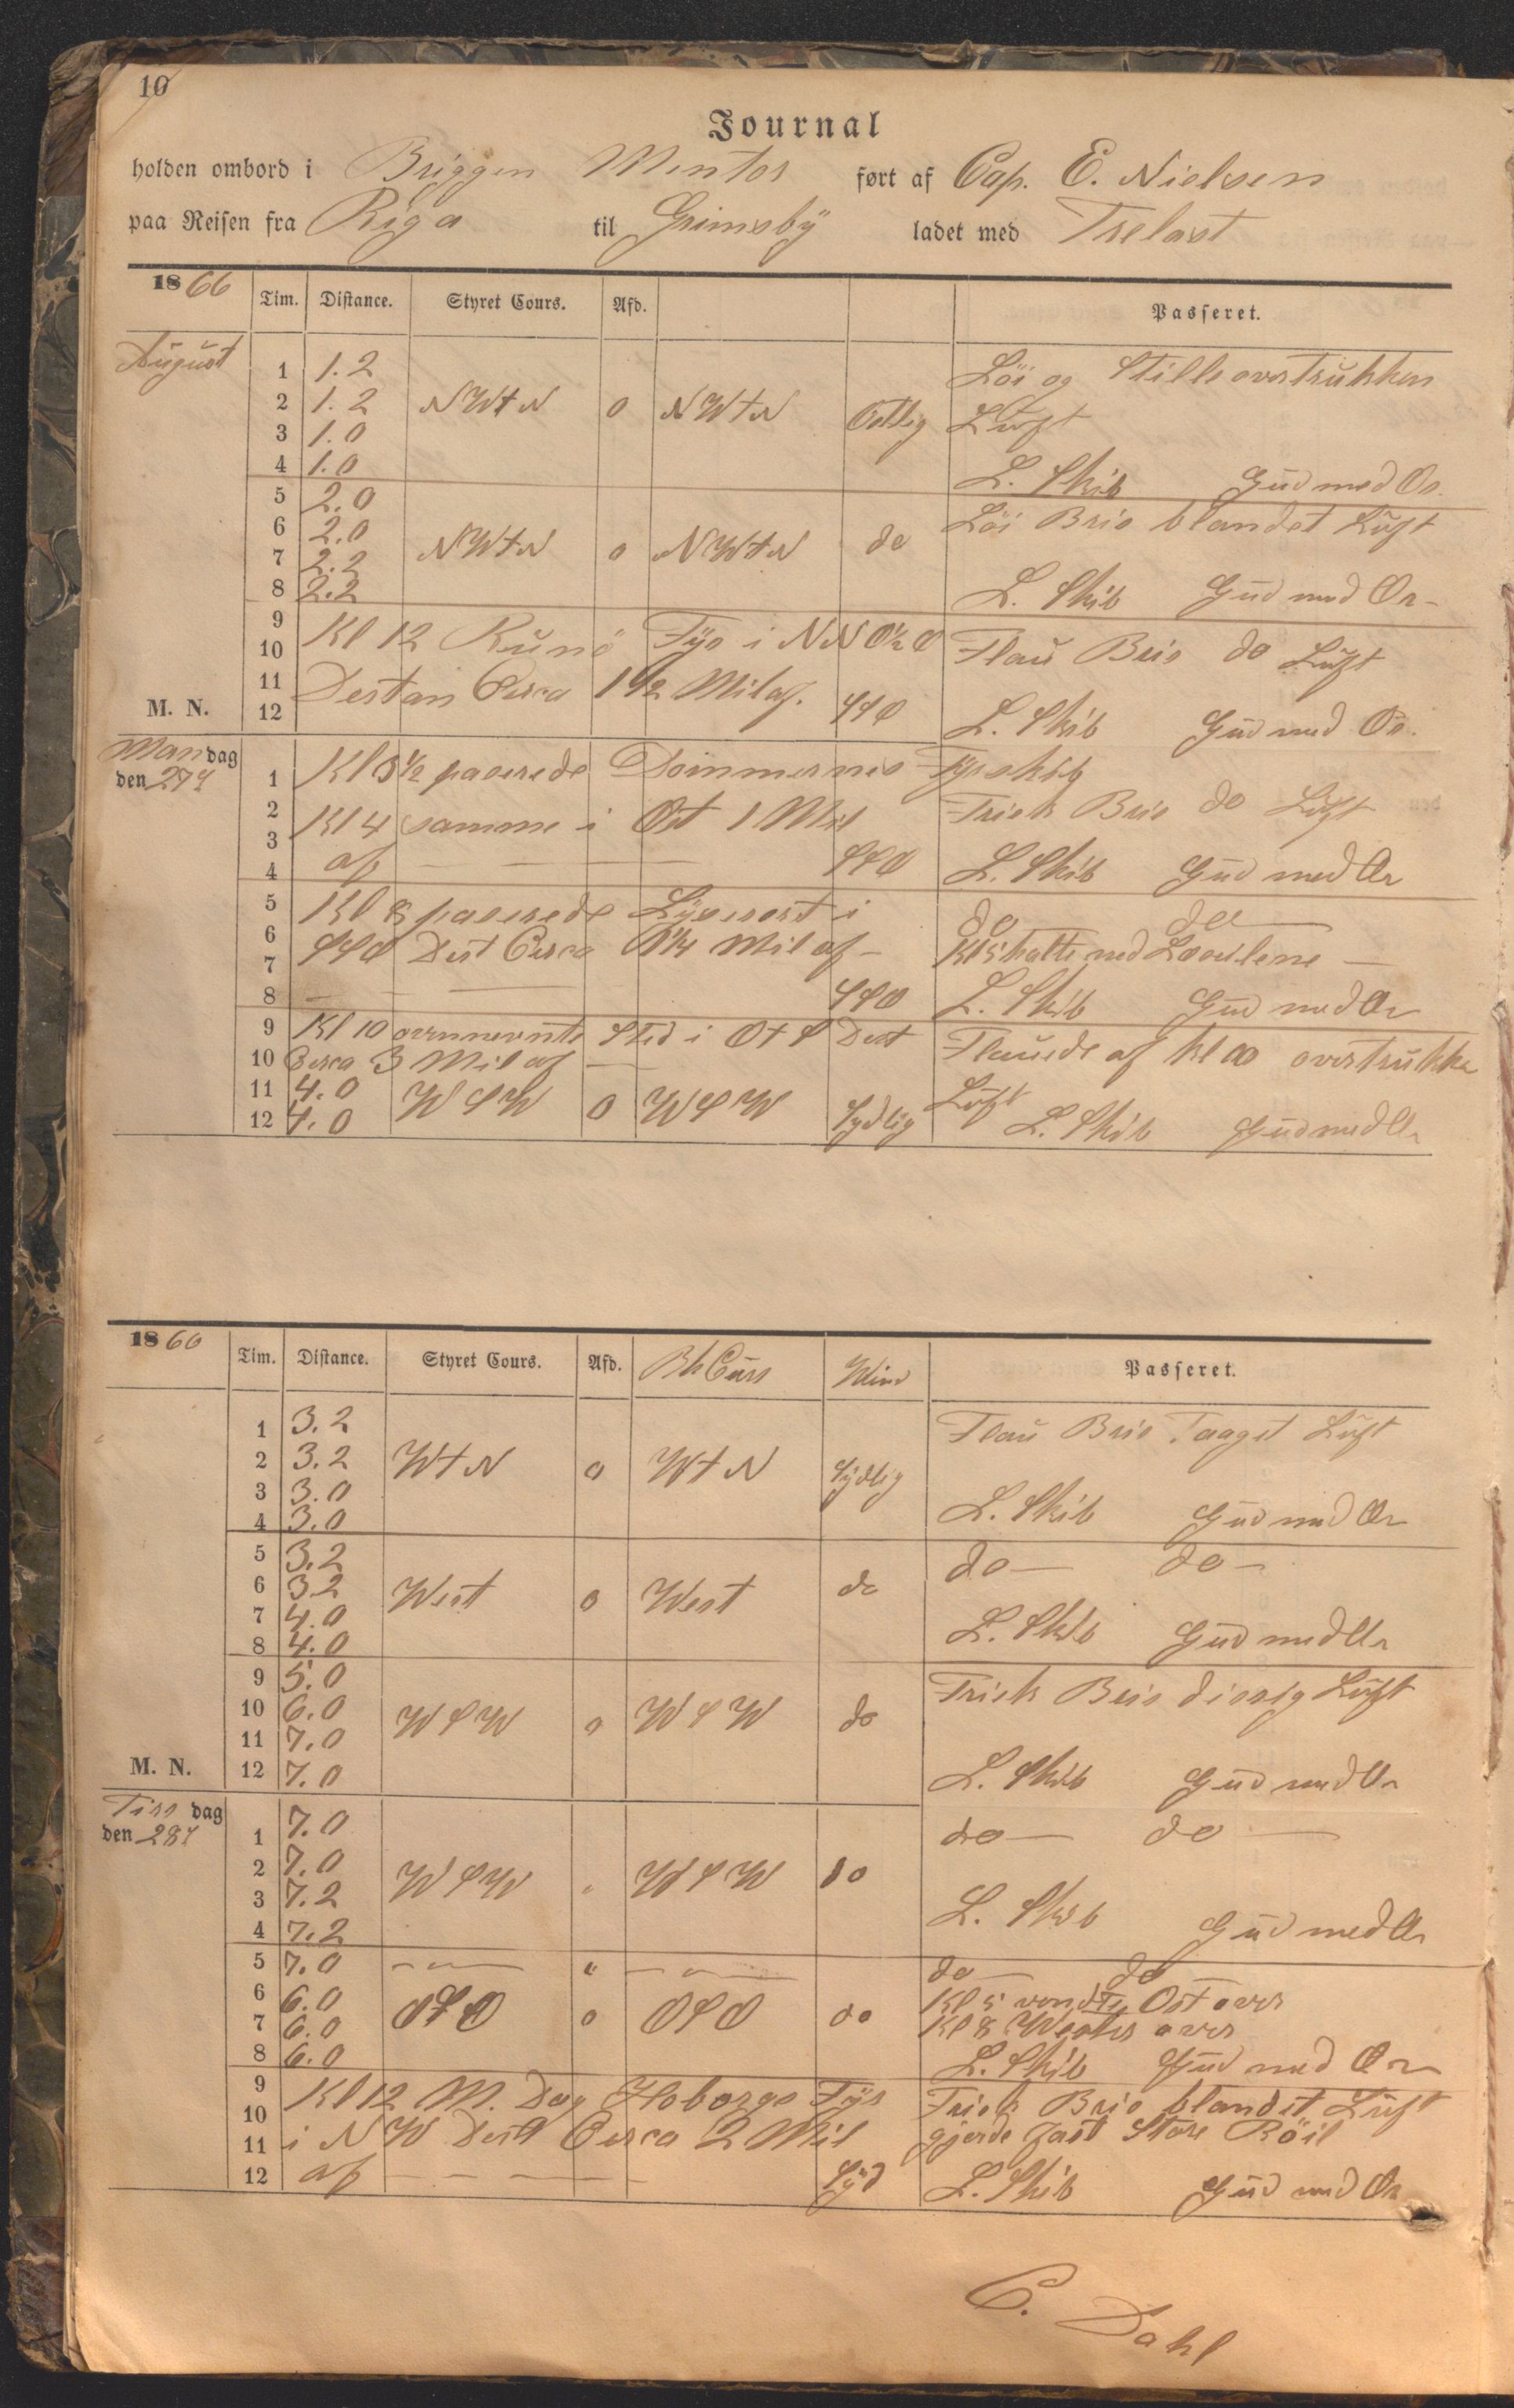 10
Journal
holden ombord i Briggen Mentor ført af Cap. E. Nielsen
paa Reisen fra Riga til Grimsby ladet med Trelast
1866 Tim. Distance. Styret Cours. Afd. Passeret.
August
1 1.2 Löi og Stille overtrukken
2 1.2 NWtN 0 NWtN Ostlig Luft
3 1.0
4 1.0 L. Skib Gud med Os.
5 2.0 Löi Bris blandet Luft
6 2.0
7 2.2 NWtN 0 NWtN do
8 2.2 L. Skib Gud med Os
9 Kl 12 Runö Fyr i NNO½O Flau Bris do Luft
10
11 Destan Cirka 1½ Mil af.
M. N. 12 SSO L. Skib Gud med Os.
Mandag
den 27de
1 Kl 3½ paserede Dommernes Fyrskib
2 Frisk Bris do Luft
3 Kl 4 samme i Ost 1 Mil
4 af SSO L. Skib Gud med Os
5 Kl 8 paserede Lyserort i do do
6 SSO Dist Cirka 1¼ Mil af Kl 5 hatte ned Loovilene
7
8 SSO L. Skib Gud med Os
9 Kl 10 Sted i OtS Dest Flauede af Kl overtrukke
10 Cirka 3 Mil af
11 4.0 WSW 0 WSW Sydlig Luft
12 4.0 L. Skib Gud med Os
1866 Tim. Distance. Styret Cours. Afd. Bh Curs Wind Passeret.
1 3.2 Flau Bris Taaget Luft
2 3.2 WtN 0 WtN Sydlig
3 3.0
4 3.0 L. Skib Gud med Os
5 3.2 do do
6 3.2 West 0 West do
7 4.0
8 4.0 L. Skib Gud med Os
9 5.0 Frisk Bris disig Luft
10 6.0 WSW 0 WSW do
11 7.0
M. N. 12 7.0 L. Skib Gud med Os
Tirsdag
den 28de
1 7.0 do do
2 7.0 WSW " WSW do
3 7.2
4 7.2 L. Skib Gud med Os
5 7.0 — " — " — " — do do
6 6.0 OSO 0 OSO do Kl 5 vendte Ost over
7 6.0 Kl 8 Wester over
8 6.0 L. Skib Gud med Os
9 Kl 12 M. Dag Hoborgs Fyr Frisk Bris blandet Luft
10
11 i NW Dist Cirka 2 Mil gjorde fast Store Röil
12 af Syd L. Skib Gud med Os
C. Dahl